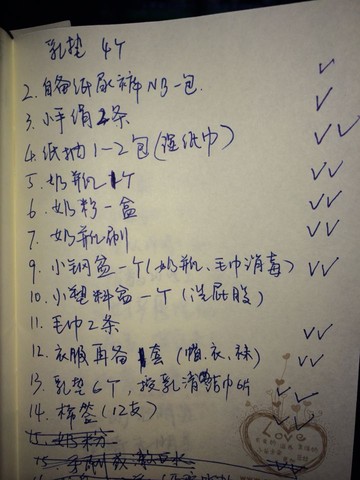 乳垫 4个
2.自备纸尿裤NB一包.
3.小手绢2条
4.纸抽1-2包(湿纸巾)
5.奶瓶1个
6.奶粉一盒
7.奶瓶刷
9.小钢盆一个(奶瓶、毛巾消毒)
10.小塑料盆一个(洗屁股)
11.毛巾2条
12.衣服再备1套(帽.衣.袜)
13.乳垫6个,授乳清洁巾6片
14.棉签(12支)
15.奶粉
Love